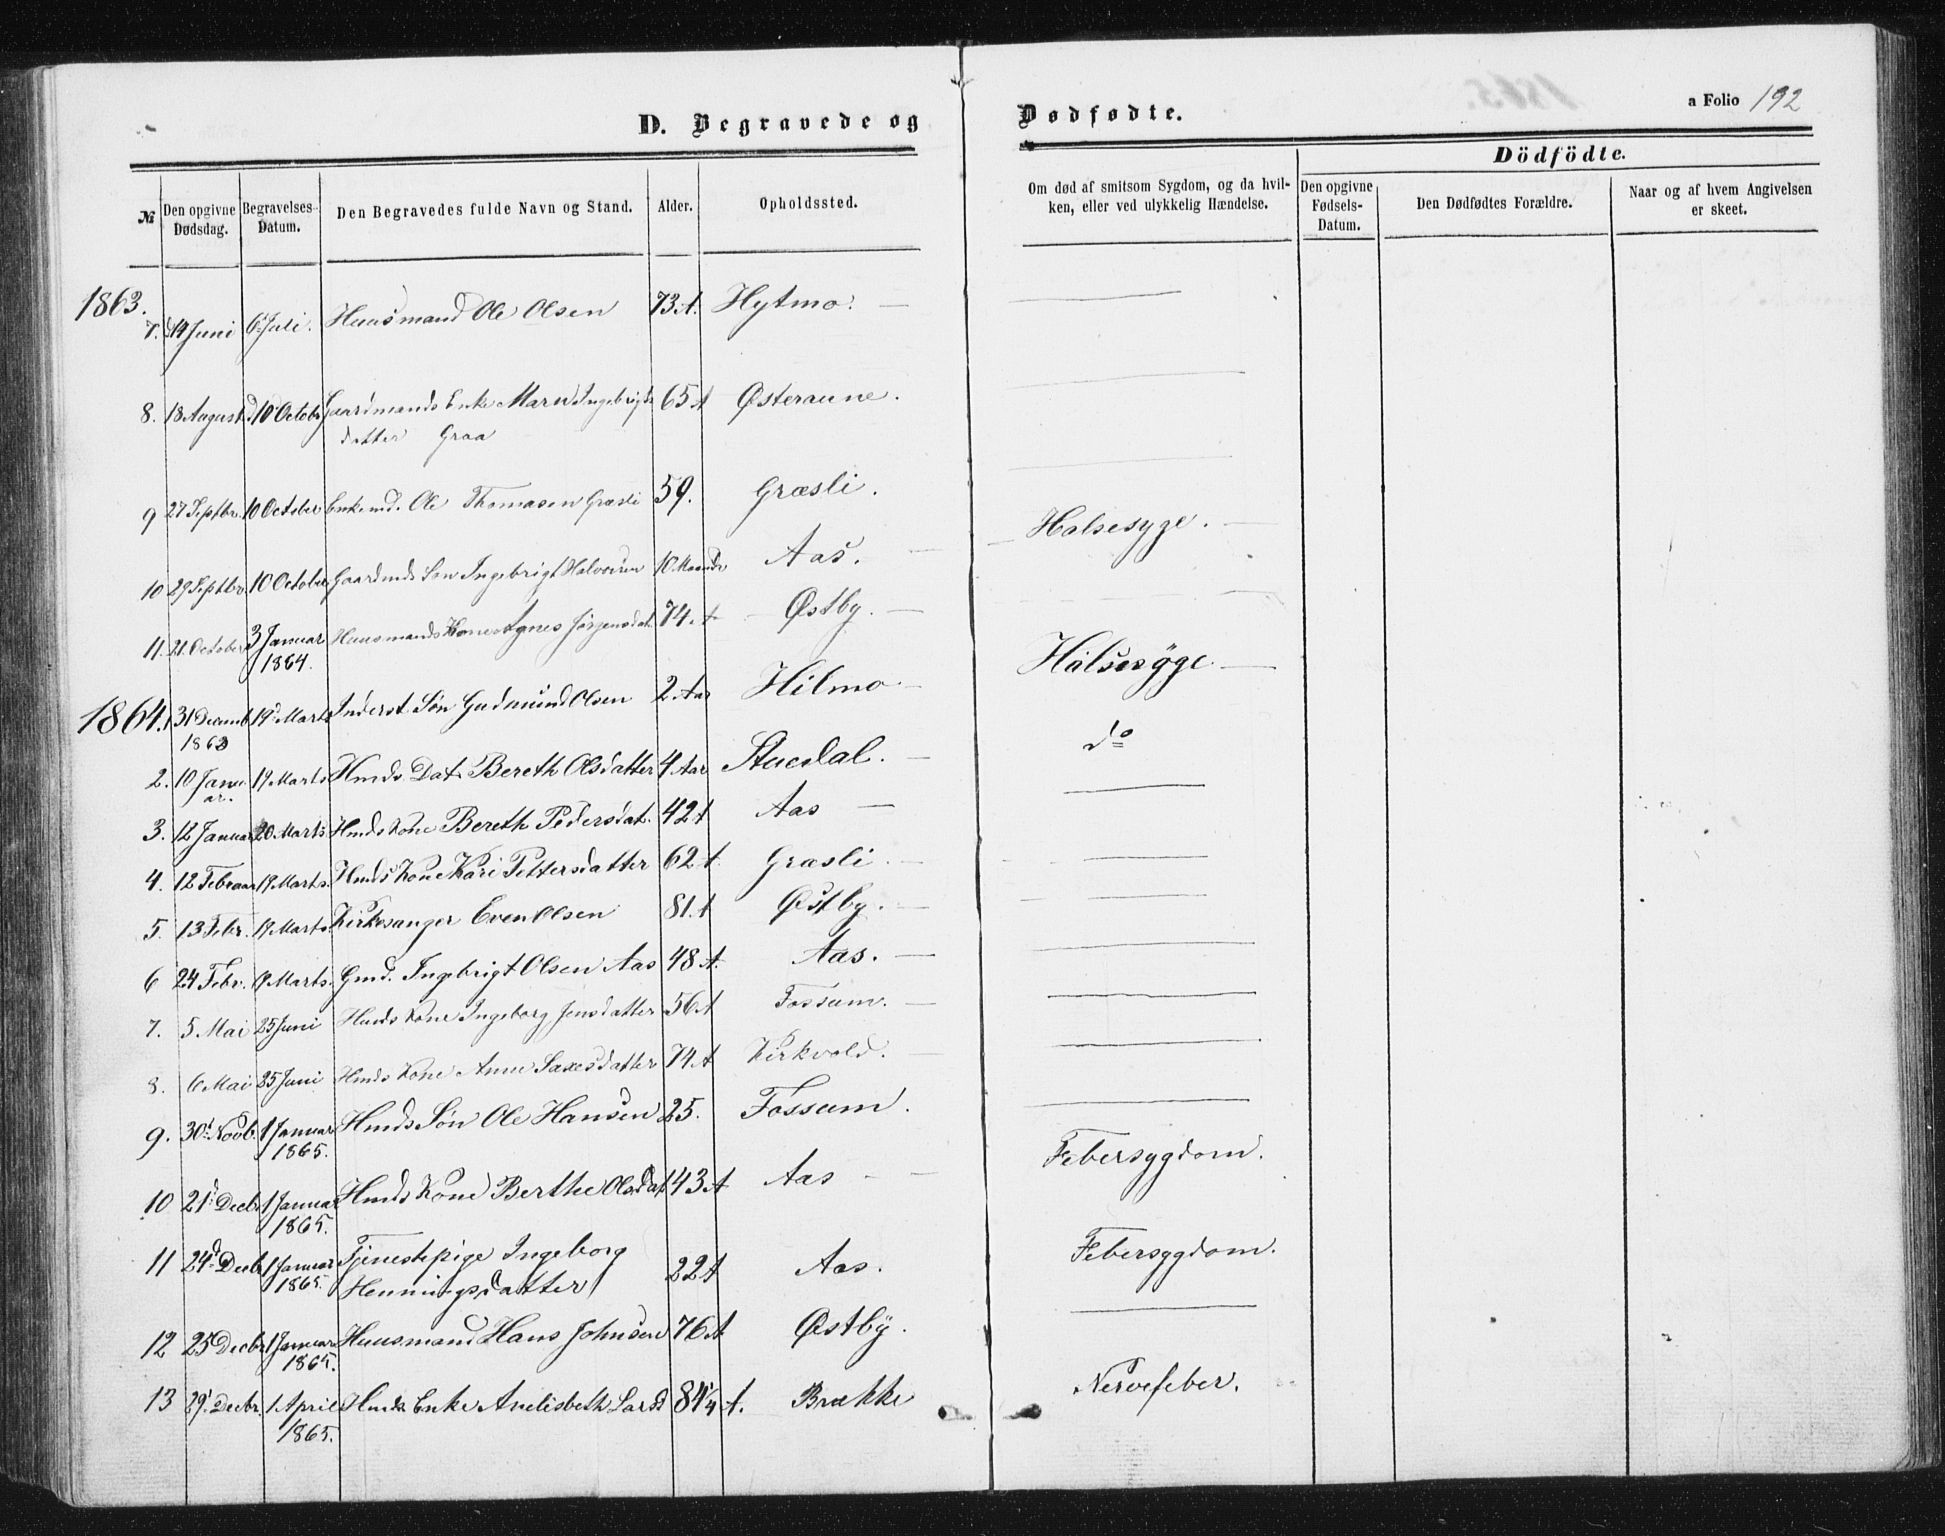 D. Begravede og Dødfødte.
a Folio 192
Dödfödte.
№ Den opgivne Dødsdag. Begravelses-Datum. Den Begravedes fulde Navn og Stand. Alder. Opholdssted. Om død af smitsom Sygdom, og da hvilken, eller ved ulykkelig Hændelse. Den opgivne Fødsels-Datum. Den Dødfødtes Forældre. Naar og af hvem Angivelsen er skeet.
1863.
7. 14 Juni 6 Juli. Huusmand Ole Olsen 73 A. Hytmo.
8. 18 August 10 Octobr Gaardmands Enke Marit Ingebrigts 65 A Østeraune.
datter Graa
9 27 Septbr. 10 October Enkemd. Ole Thomasen Græsli 59. Græsli.
10 29 Septbr 10 October Gaardmds Søn Ingebrigt Halvorsen 10 Maaneder Aas. Halsesyge.
11. 21. October 3 Januar Huusmands Kone Agnes Jørgensdat. 74 A Østby.
1864.
1864. 1. 31 Decemb 19 Marts Inderst. Søn Gudmund Olsen 2 Aar Hilmo Halsesyge
1863
2. 10 Janu- 19 Marts Hmds. Dat. Bereth Olsdatter 4 Aar Stuedal. do
ar.
3. 12 Januar 20 Marts Hmds Kone Bereth Pedersdat. 42 A Aas
4. 12 Februar 19 Marts. Hmds Kone Kari Pettersdatter 62 A. Græsli
5. 13 Febr. 19 Marts. Kirkesanger Even Olsen 81. A Østby.
6 24 Febr. 19 Marts. Gmd. Ingebrigt Olsen Aas 48 A. Aas.
7. 5 Mai 25 Juni Hmds Kone Ingeborg Jensdatter 56 A Fossum.
8. 6 Mai 25 Juni Hmds Kone Anne Saxesdatter 74 A Kirkvold.
9. 30. Novb. 1 Januar Hmds Søn Ole Hansen 25. Fossum.
1865.
10 21 Decbr 1 Januar Hmds Kone Berthe Olsdat 43 A Aas Febersygdom.
1865.
11 24 Decbr 1 Januar Tjenestepige Ingeborg
1865. Henningsdatter 22 A Aas. Febersygdom.
12 25 Decbr 1 Januar Huusmand Hans Johnsen 76 A Østby.
1865.
13 29. Decbr. 1. April Hmds Enke Anelisbeth Larsd 84 1/4 A. Brække Nervefeber.
1865.